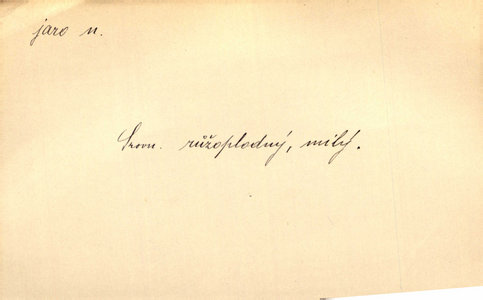 jaro n.
Srovn. růžoplodný, milý.